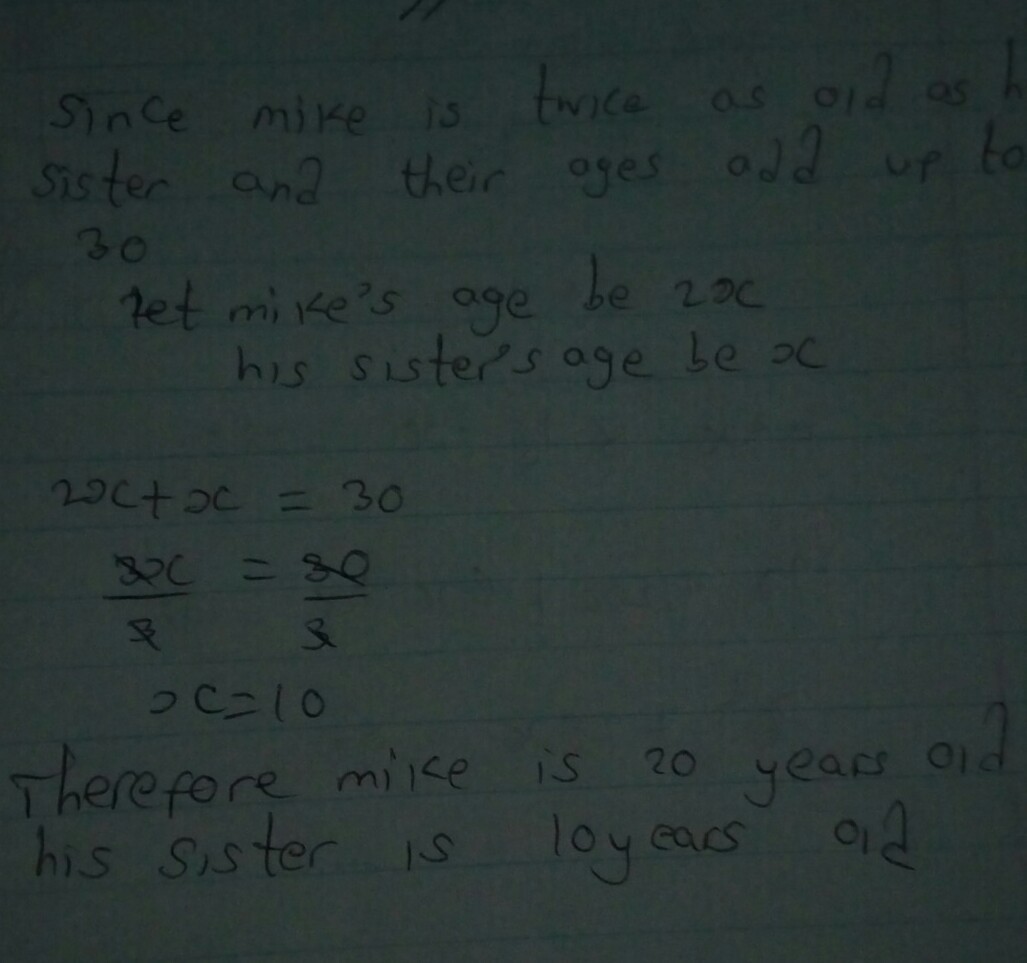 Since mike is twice as old as h
sister and their ages add up to
30
let mike's age be 2x
his sister's age be x
2x+x = 30
3x = 30
3 3
x=10
Therefore mike is 20 years old
his sister is 10years old